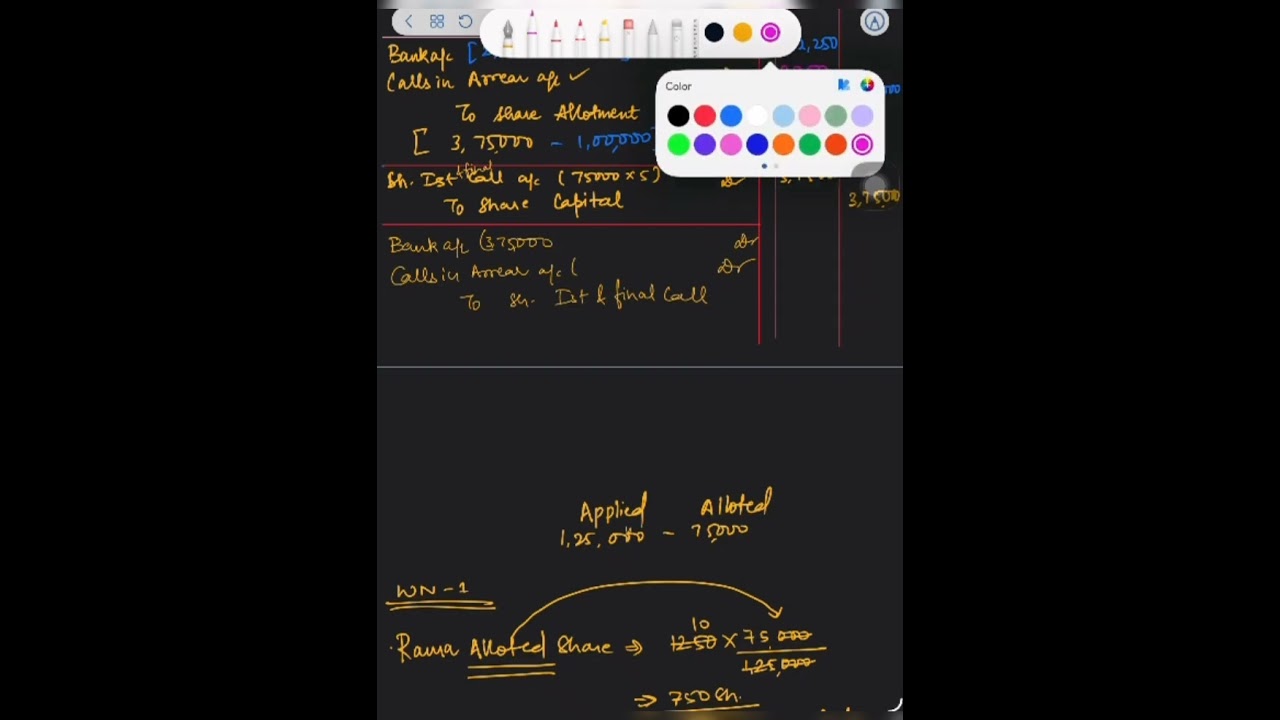 Bank a/c [
1,250
Color
Calls in Arrear a/c ✓
To Share Allotment
[ 3,75,000 - 1,00,000
Sh. Ist + final Call a/c (75000 × 5) Dr
To Share Capital
3,75,000
Bank a/c (3,75,000 Dr
Calls in Arrear a/c ( Dr
To Sh. Ist & final Call
Applied Alloted
1,25,000 - 75,000
WN-1
Rama Alloted Share ⇒ 1250 10 × 75,000
1,25,000
⇒ 750 Sh.